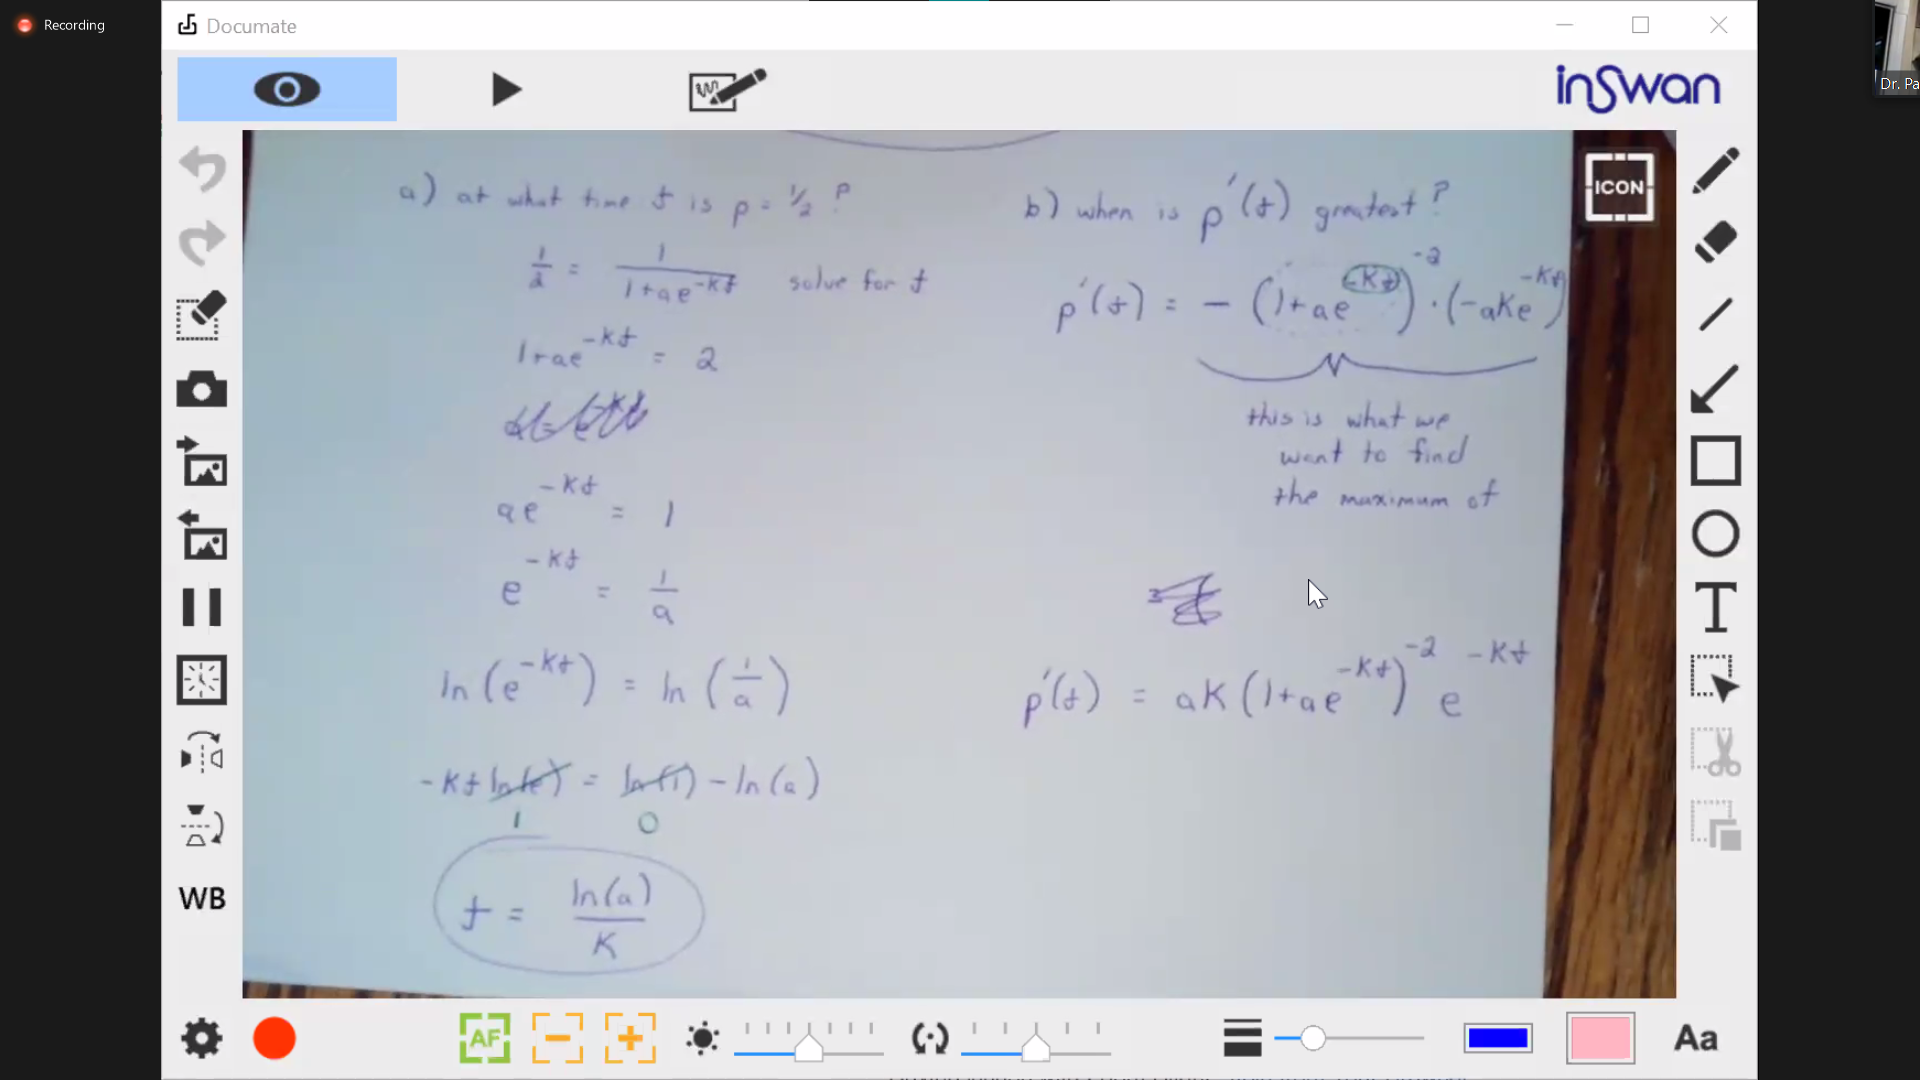 Recording
Documate
inSwan
Dr. Pa
ICON
a) at what time t is p = 1/2 ?
1/2 = 1/(1+ae^-kt) solve for t
1+ae^-kt = 2
ae^-kt = 1
e^-kt = 1/a
ln(e^-kt) = ln(1/a)
-kt ln(e) = ln(1) - ln(a)
1 0
t = ln(a)/K
b) when is p'(t) greatest?
p'(t) = - (1+ae^-kt)^-2 · (-aKe^-kt)
this is what we
want to find
the maximum of
p'(t) = aK(1+ae^-kt)^-2 e^-kt
WB
T
AF
Aa